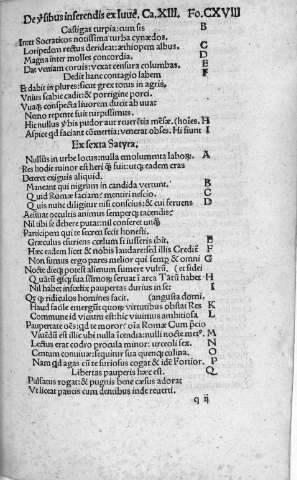 De ỹsibus inserendis ex Iuuē. Ca. XIII. Fo. CXVIII
Castigas turpia: cum sis B
Inter Socraticos notissima turba cynædos.
Loripedem rectus derideat: æthiopem albus. C
Magna inter molles concordia. D
Dat veniam coruis: vexat censura columbas. E
Dedit hanc contagio labem F
Et dabit in plures: sicut grex totus in agris,
Vnius scabie cadit: & porrigine porci.
Vuaq̃ conspecta liuorem ducit ab uua:
Nemo repente fuit turpissimus.
Hic nullus ỹbis pudor aut reuerētia mēsæ. (hoīes. H
Aspice qđ faciant cōmertia: venerat obses. Hi fiunt I
Ex sexta Satyra.
Nullus in vrbe locus: nulla emolumenta laboꝝ. A
Res hodie minor est heri q̃ fuit: atq; eadem cras
Deteret exiguis aliquid.
Maneant qui nigrum in candida vertunt. B
Quid Romæ faciam: mentiri nescio. C
Quis nunc diligitur nisi conscius: & cui feruens D
Aestuat occultis animus semperq; tacendis?
Nil tibi se debere putat: nil conferet unq̃
Participem qui te secreti fecit honesti.
Græculus esuriens cœlum si iusseris ibit. E
Hæc eadem licet & nobis laudare: sed illis Credit̃ F
Non sumus ergo pares melior qui semp & omni G
Nocte dieq; potest alienum sumere vultū. ( et fidei
Quātū qsq; sua nūmoꝝ seruat ī arca Tātū habet H
Nil habet infœlix paupertas durius in se: I
Qꝫ q̃ ridiculos homines facit. (angusta domi.
Haud facile emergūt quoꝝ virtutibus obstat Res K
Commune id vitium est: hic viuimus ambitiosa L
Paupertate oēs: qd te moror? oīa Romæ Cum p̃cio
Viuēdū est illic ubi nulla ītendia: nulli nocte met⁹. M
Lectus erat codro procula minor: urceoli sex. N
Centum conuiuæ: sequitur sua quenq; culina. O
Nam qd agas cū te furiosus cogat & idē Fortior. P
Libertas pauperis hæc est. Q
Pulsatus rogat: & pugnis bene cæsus adorat
Vt liceat paucis cum dentibus inde reuerti.
q ij